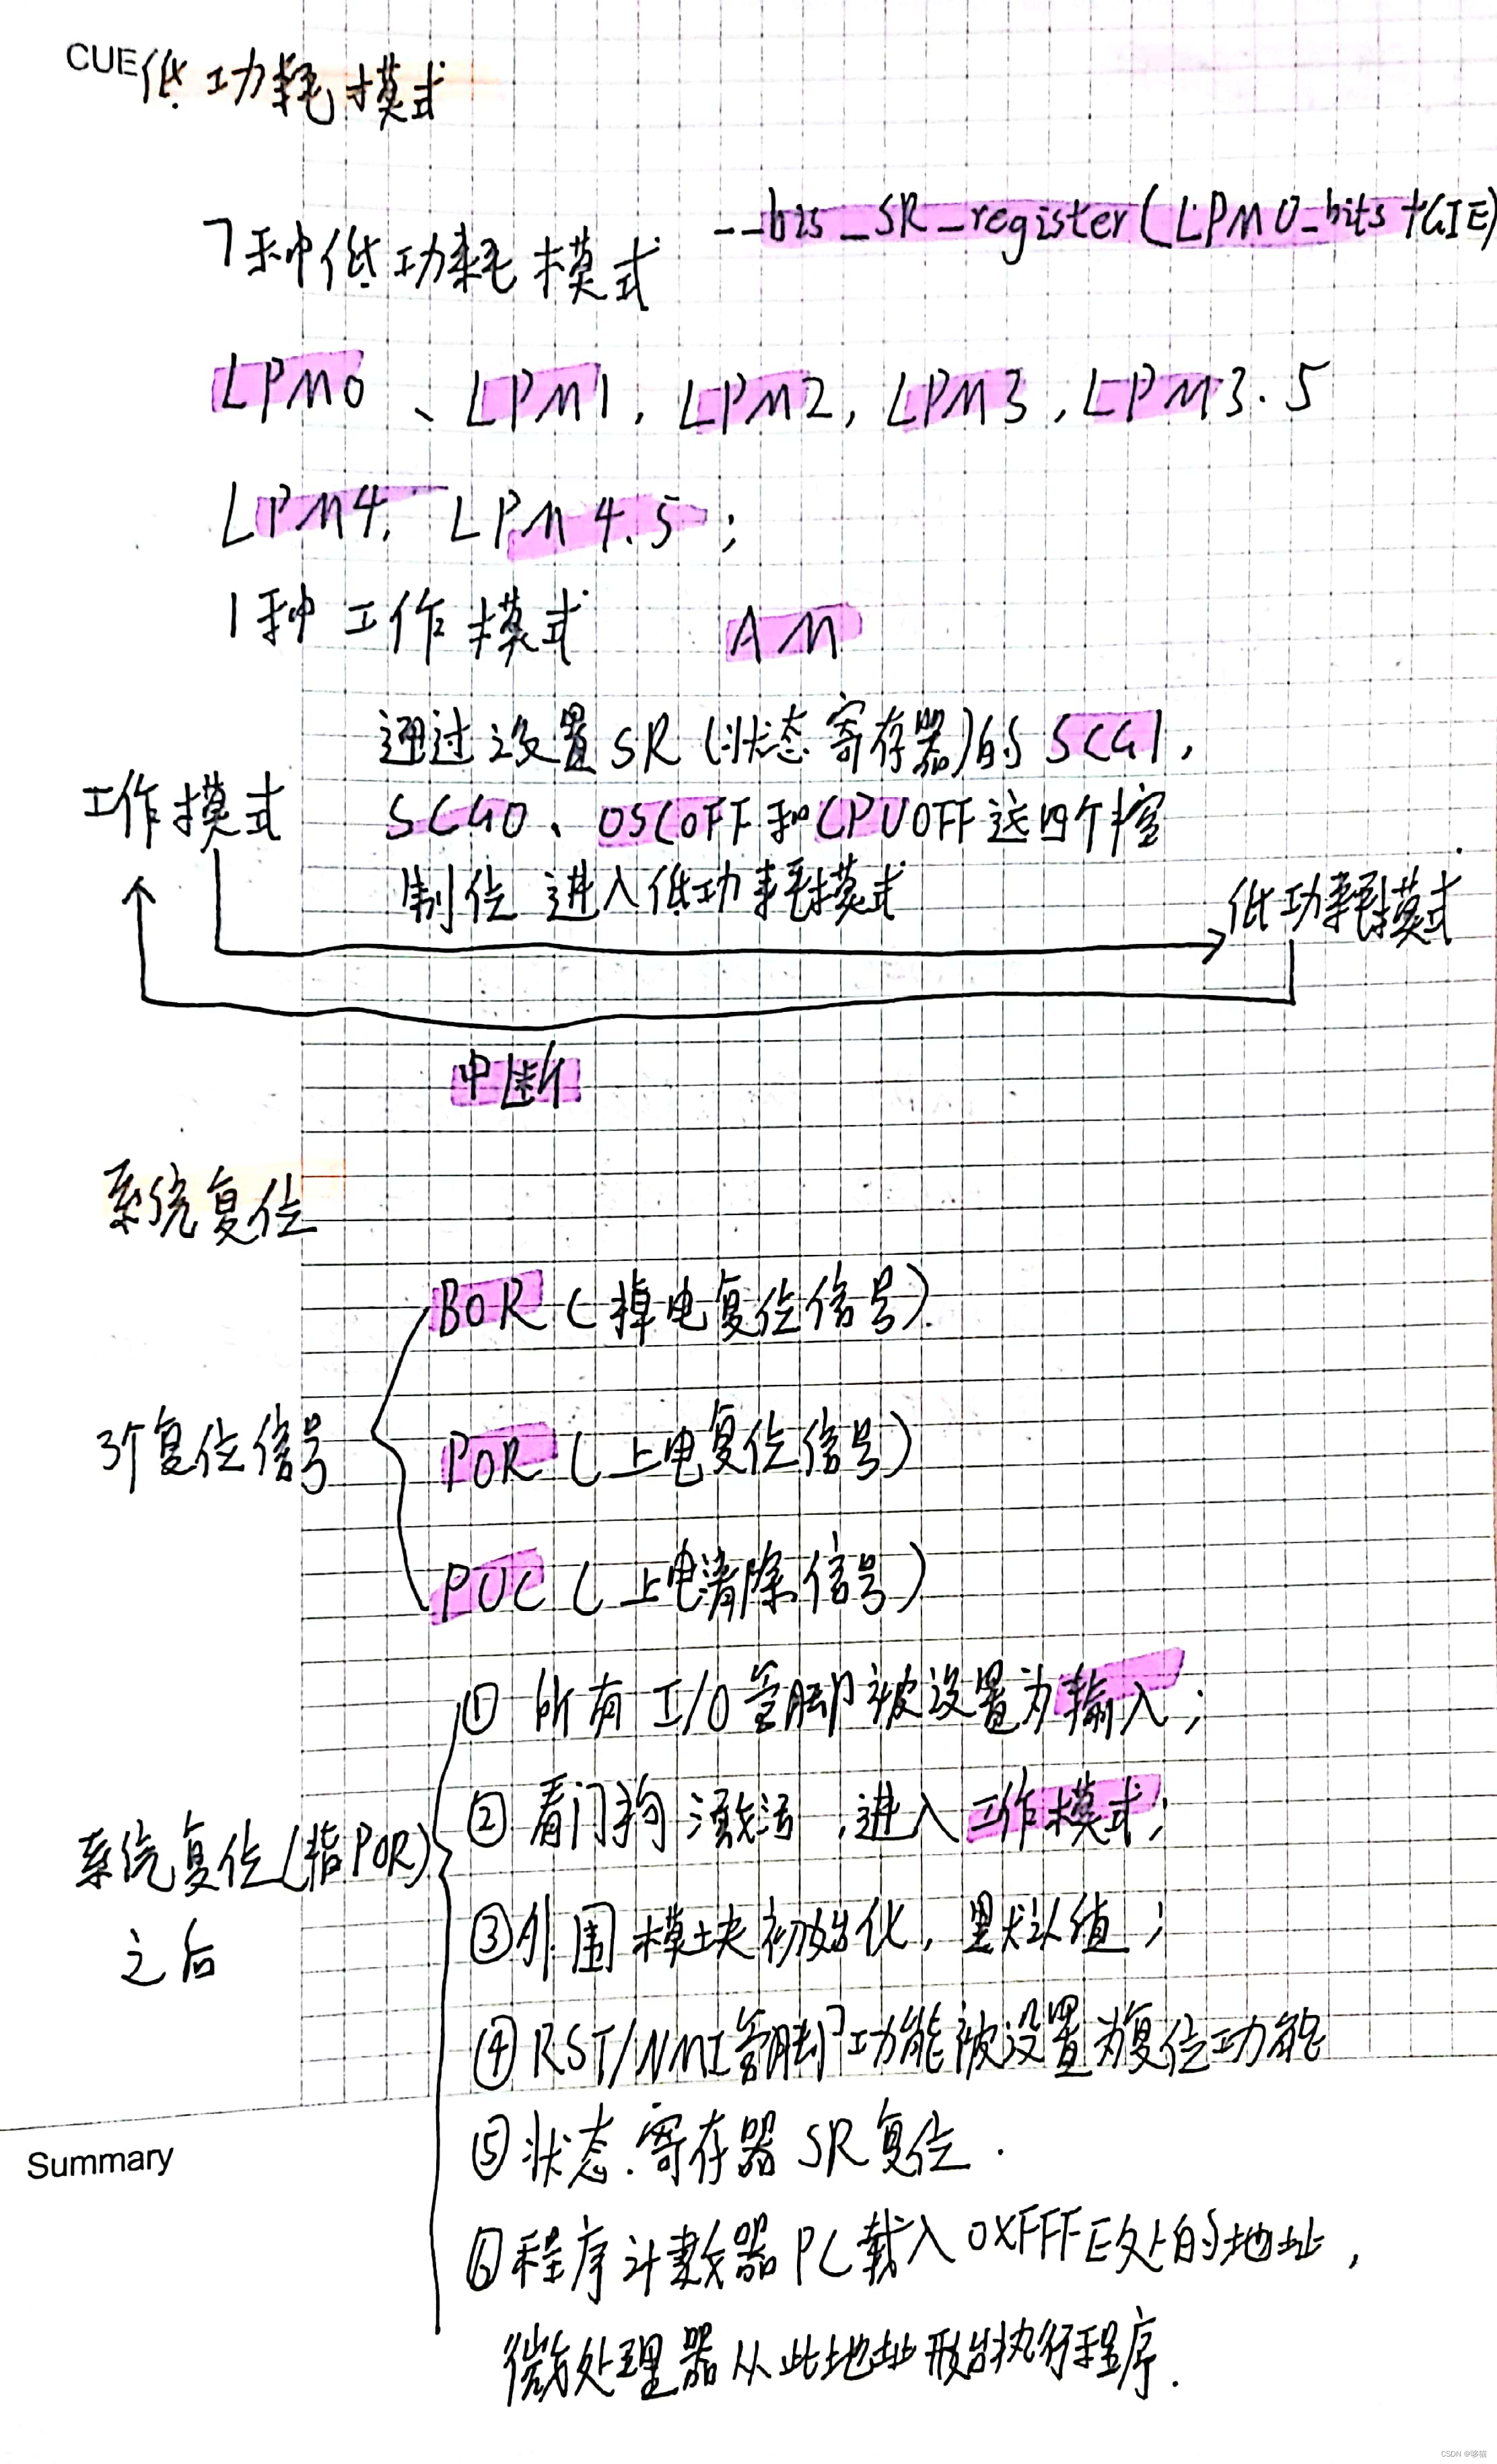 CUE低功耗模式
7种中低功耗模式 __bis_SR_register(LPM0_bits+GIE)
LPM0、LPM1,LPM2,LPM3,LPM3.5
LPM4,LPM4.5;
1种工作模式 AM
通过设置SR(状态寄存器)的SCG1,
工作模式 SCG0、OSCOFF和CPUOFF这四个控
制位 进入低功耗模式 低功耗模式
中断
系统复位
BOR(掉电复位信号).
3个复位信号
POR(上电复位信号)
PUC(上电清除信号)
①所有I/O管脚被设置为输入;
②看门狗激活,进入工作模式;
系统复位(指POR)
③外围模块初始化,默认值;
之后
④RST/NMI管脚功能被设置为复位功能
⑤状态寄存器SR复位.
Summary
⑥程序计数器PC载入0XFFFE处的地址,
微处理器从此地址开始执行程序.
CSDN @哆猫